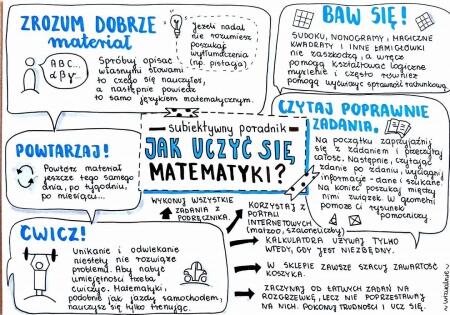 ZROZUM DOBRZE
materiał
jeżeli nadal
nie rozumiesz
poszukaj
wytłumaczenia
(np. pistacja)
ABC...
αβγ...
Spróbuj opisać
własnymi słowami
to czego się nauczyłeś,
a następnie powiedz
to samo językiem matematycznym.
BAW SIĘ!
SUDOKU, NONOGRAMY, MAGICZNE
KWADRATY I INNE ŁAMIGŁÓWKI
NIE ZASZKODZĄ, A WRĘCZ
POMOGĄ KSZTAŁTOWAĆ LOGICZNE
MYŚLENIE I CZĘSTO RÓWNIEŻ
POMOGĄ WYĆWICZYĆ SPRAWNOŚĆ RACHUNKOWĄ.
subiektywny poradnik
JAK UCZYĆ SIĘ
MATEMATYKI?
CZYTAJ POPRAWNIE
ZADANIA.
Na początku zaprzyjaźnij
się z zadaniem i przeczytaj
całość. Następnie, czytając
zdanie po zdaniu, wyciągnij
informacje - dane i szukane.
Na koniec poszukaj między
nimi związek. W geometrii
pomoże Ci rysunek
pomocniczy.
POWTARZAJ!
Powtórz materiał
jeszcze tego samego
dnia, po tygodniu,
po miesiącu...
WYKONUJ WSZYSTKIE
ZADANIA Z
PODRĘCZNIKA.
KORZYSTAJ Z
PORTALI
INTERNETOWYCH
(matzoo, szaloneliczby)
ĆWICZ!
Unikanie i odwlekanie
niestety nie rozwiąże
problemu. Aby nabyć
umiejętności trzeba
ćwiczyć. Matematyki,
podobnie jak jazdy samochodem,
nauczysz się tylko trenując.
KALKULATORA UŻYWAJ TYLKO
WTEDY, GDY JEST NIEZBĘDNY.
W SKLEPIE ZAWSZE SZACUJ ZAWARTOŚĆ
KOSZYKA.
ZACZYNAJ OD ŁATWYCH ZADAŃ NA
ROZGRZEWKĘ, LECZ NIE POPRZESTAWAJ
NA NICH. POKONUJ TRUDNOŚCI I UCZ SIĘ.